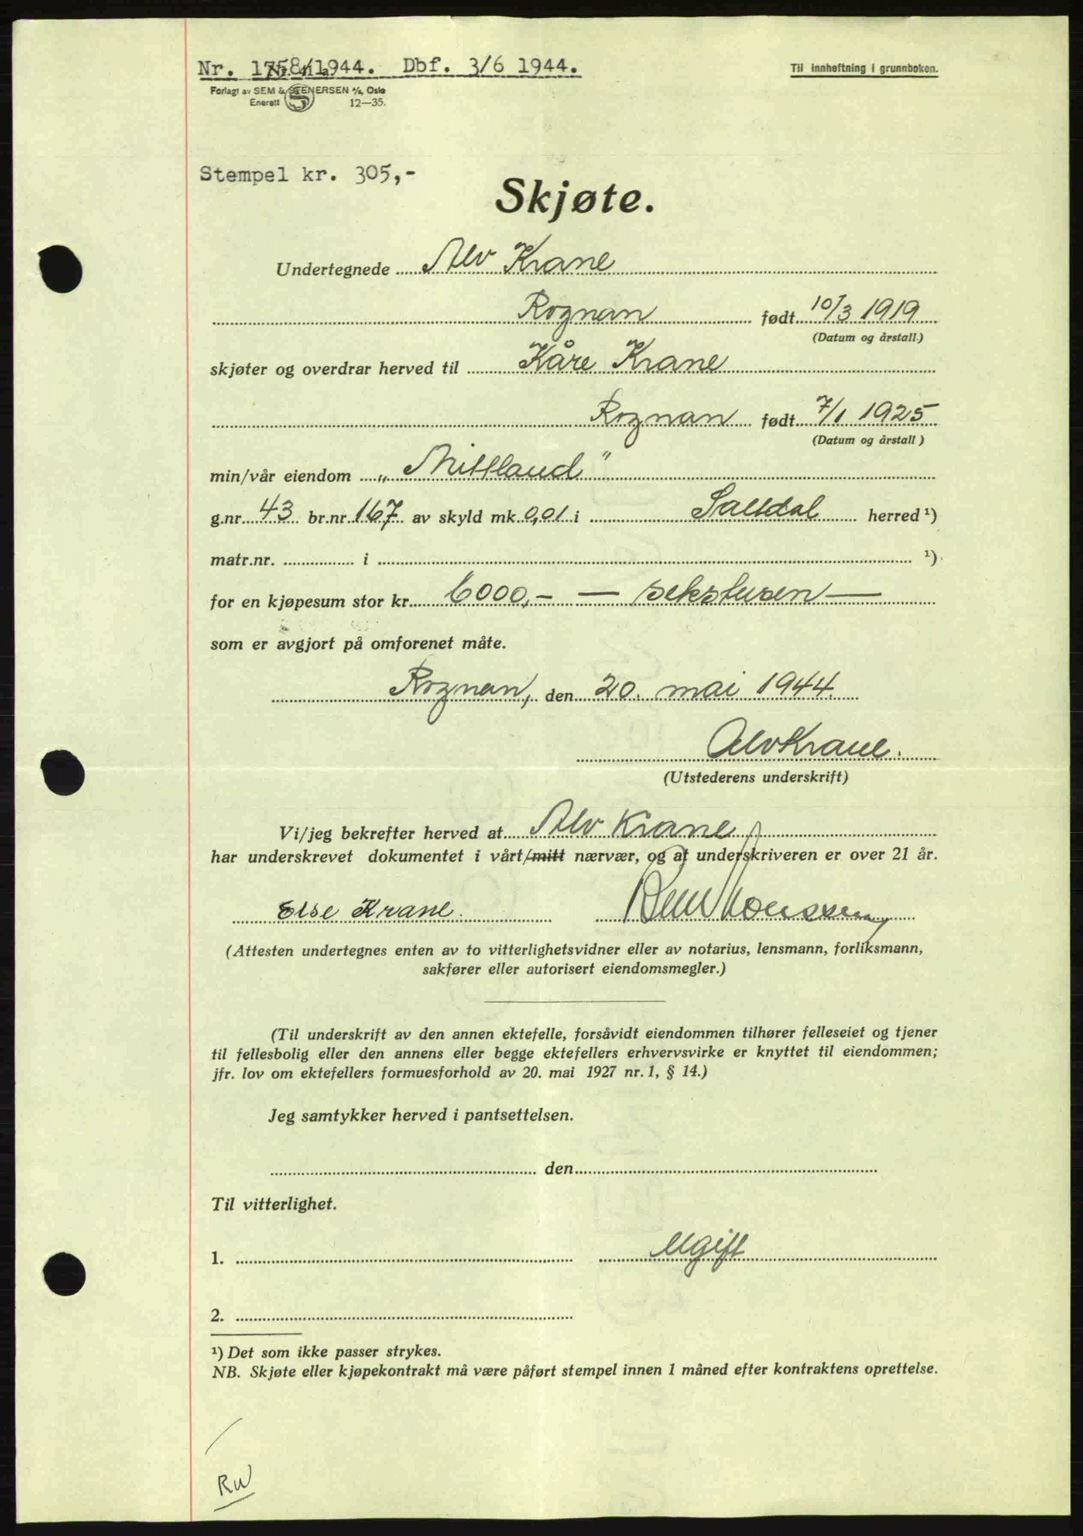 Nr. 1758/1944. Dbf. 3/6 1944.
Til innheftning i grunnboken.
Forlagt av SEM & STENERSEN A/S, Oslo
Enerett 12—35.
Stempel kr. 305,-
Skjøte.
Undertegnede Alv Krane
Rognan født 10/3 1919
(Datum og årstall.)
skjøter og overdrar herved til Kåre Krane
Rognan født 7/1 1925
(Datum og årstall)
min/vår eiendom „Mittland"
g.nr. 43 br.nr. 167 av skyld mk. 0,01 i Saltdal herred ¹)
matr.nr. i ¹)
for en kjøpesum stor kr. 6000,- — sekstusen —
som er avgjort på omforenet måte.
Rognan, den 20. mai 1944.
Alv Krane.
(Utstederens underskrift)
Vi/jeg bekrefter herved at Alv Krane
har underskrevet dokumentet i vårt/mitt nærvær, og at underskriveren er over 21 år.
Else Krane.
(Attesten undertegnes enten av to vitterlighetsvidner eller av notarius, lensmann, forliksmann,
sakfører eller autorisert eiendomsmegler.)
(Til underskrift av den annen ektefelle, forsåvidt eiendommen tilhører felleseiet og tjener
til fellesbolig eller den annens eller begge ektefellers erhvervsvirke er knyttet til eiendommen;
jfr. lov om ektefellers formuesforhold av 20. mai 1927 nr. 1, § 14.)
Jeg samtykker herved i pantsettelsen.
den
Til vitterlighet.
1. Ugift
2.
¹) Det som ikke passer strykes.
NB. Skjøte eller kjøpekontrakt må være påført stempel innen 1 måned efter kontraktens oprettelse.
RW